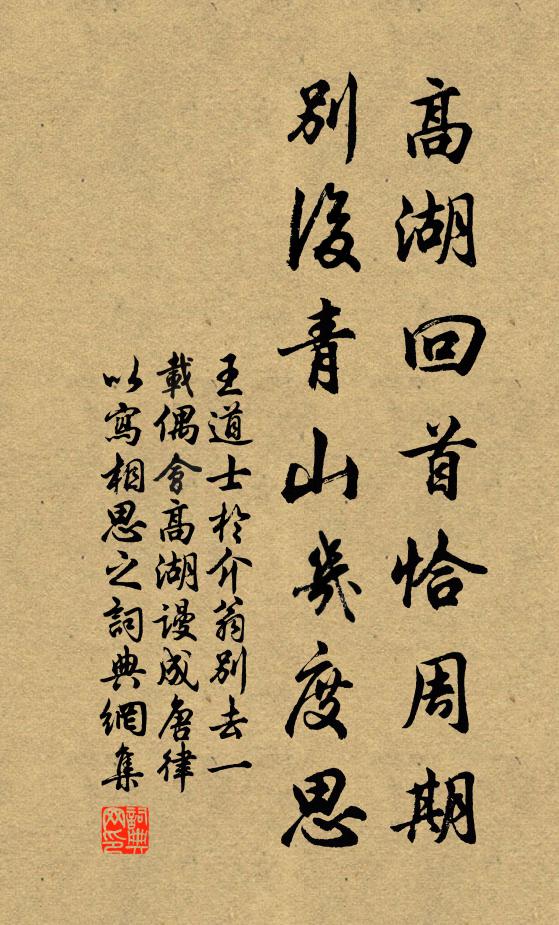 高湖回首恰周期
別後青山幾度思
王道士於介翁別去一
載偶會高湖謾成唐律
以寫相思之詞典網集
詞典
网印